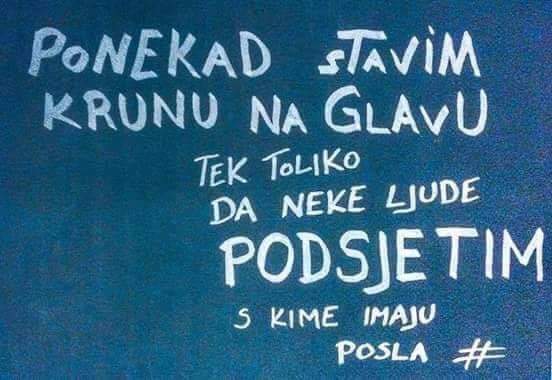 PONEKAD STAVIM
KRUNU NA GLAVU
TEK TOLIKO
DA NEKE LJUDE
PODSJETIM
S KIME IMAJU
POSLA #